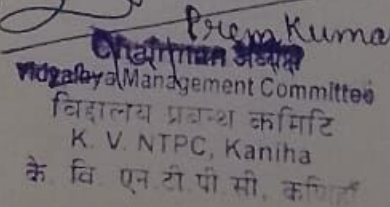 Prem Kuma
Chairman अध्यक्ष
Vidyalaya Management Committee
विद्यालय प्रबन्ध कमिटि
K. V. NTPC, Kaniha
के. वि. एन.टी.पी.सी,